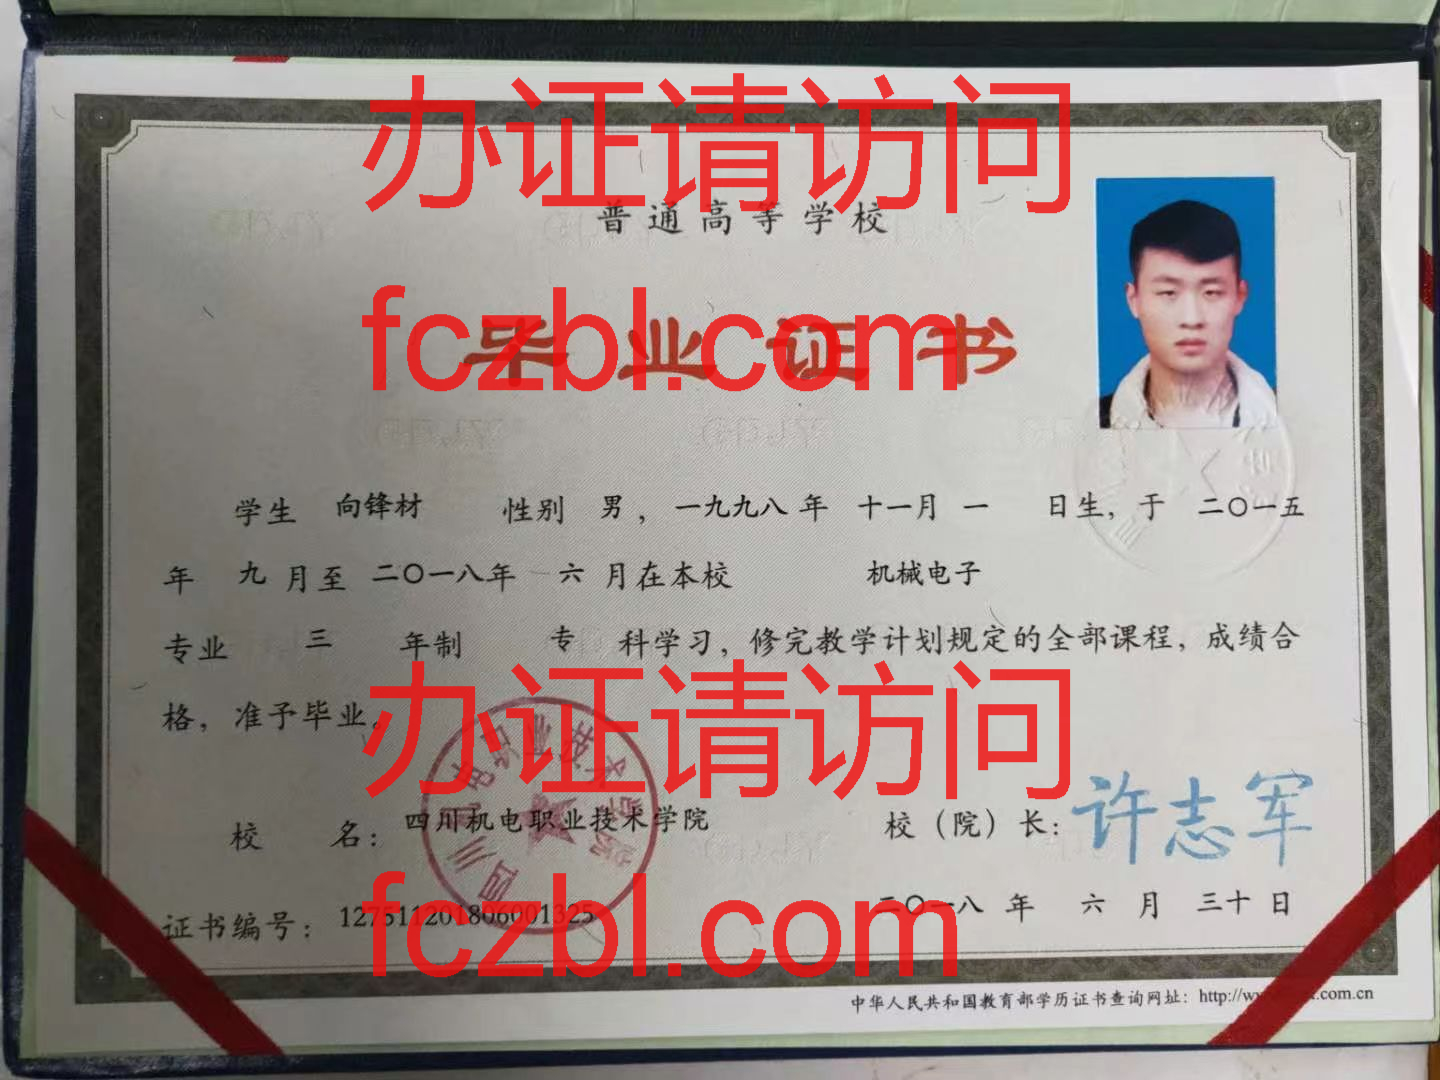 办证请访问
普通高等学校
fczbl.com
毕业证书
学生 向锋材 性别 男，一九九八年 十一月 一 日生，于 二〇一五
年 九 月至 二〇一八年 六 月在本校 机械电子
专业 三 年制 专 科学习，修完教学计划规定的全部课程，成绩合
格，准予毕业。
办证请访问
四川机电职业技术学院
校 名：四川机电职业技术学院 校（院）长：许志军
fczbl.com
证书编号：127511201806001325 二〇一八 年 六 月 三十 日
中华人民共和国教育部学历证书查询网址：http://w .com.cn